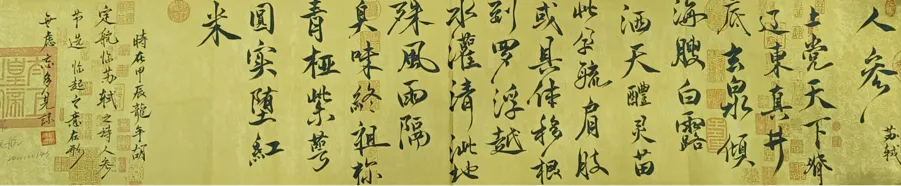 人参
苏轼
上党天下脊
辽东真井
底玄泉倾
海腴白露
洒天醴灵苗
此孕毓肩肢
或具体移根
到罗浮越
水灌清泚地
殊风雨隔
臭味终祖祢
青桠紫萼
圆实堕红
米
时在甲辰龙年胡
定航临苏轼之诗人参
节选临起之意在形